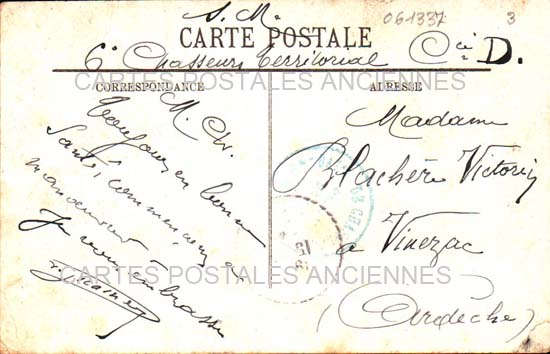 S. M. 061337 3
CARTE POSTALE
6e Chasseurs Territorial Cie D.
CARTES POSTALES ANCIENNES
CORRESPONDANCE ADRESSE
M. Ch.
Toujours en bonne
Santé, commençons à
manoeuvrer
Je vous embrasse
Madame
Blachère Victorin
à Vinezac
(Ardèche)
CARTES POSTALES ANCIENNES